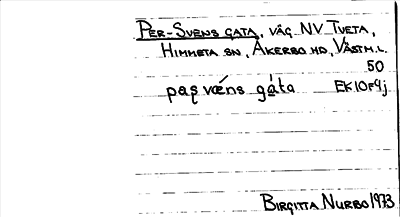 PER-SVENS GATA, VÄG NV TVETA,
HIMMETA SN, ÅKERBO HD, VÄSTM.L.
50
EK10F9j
BIRGITTA NURBO 1973